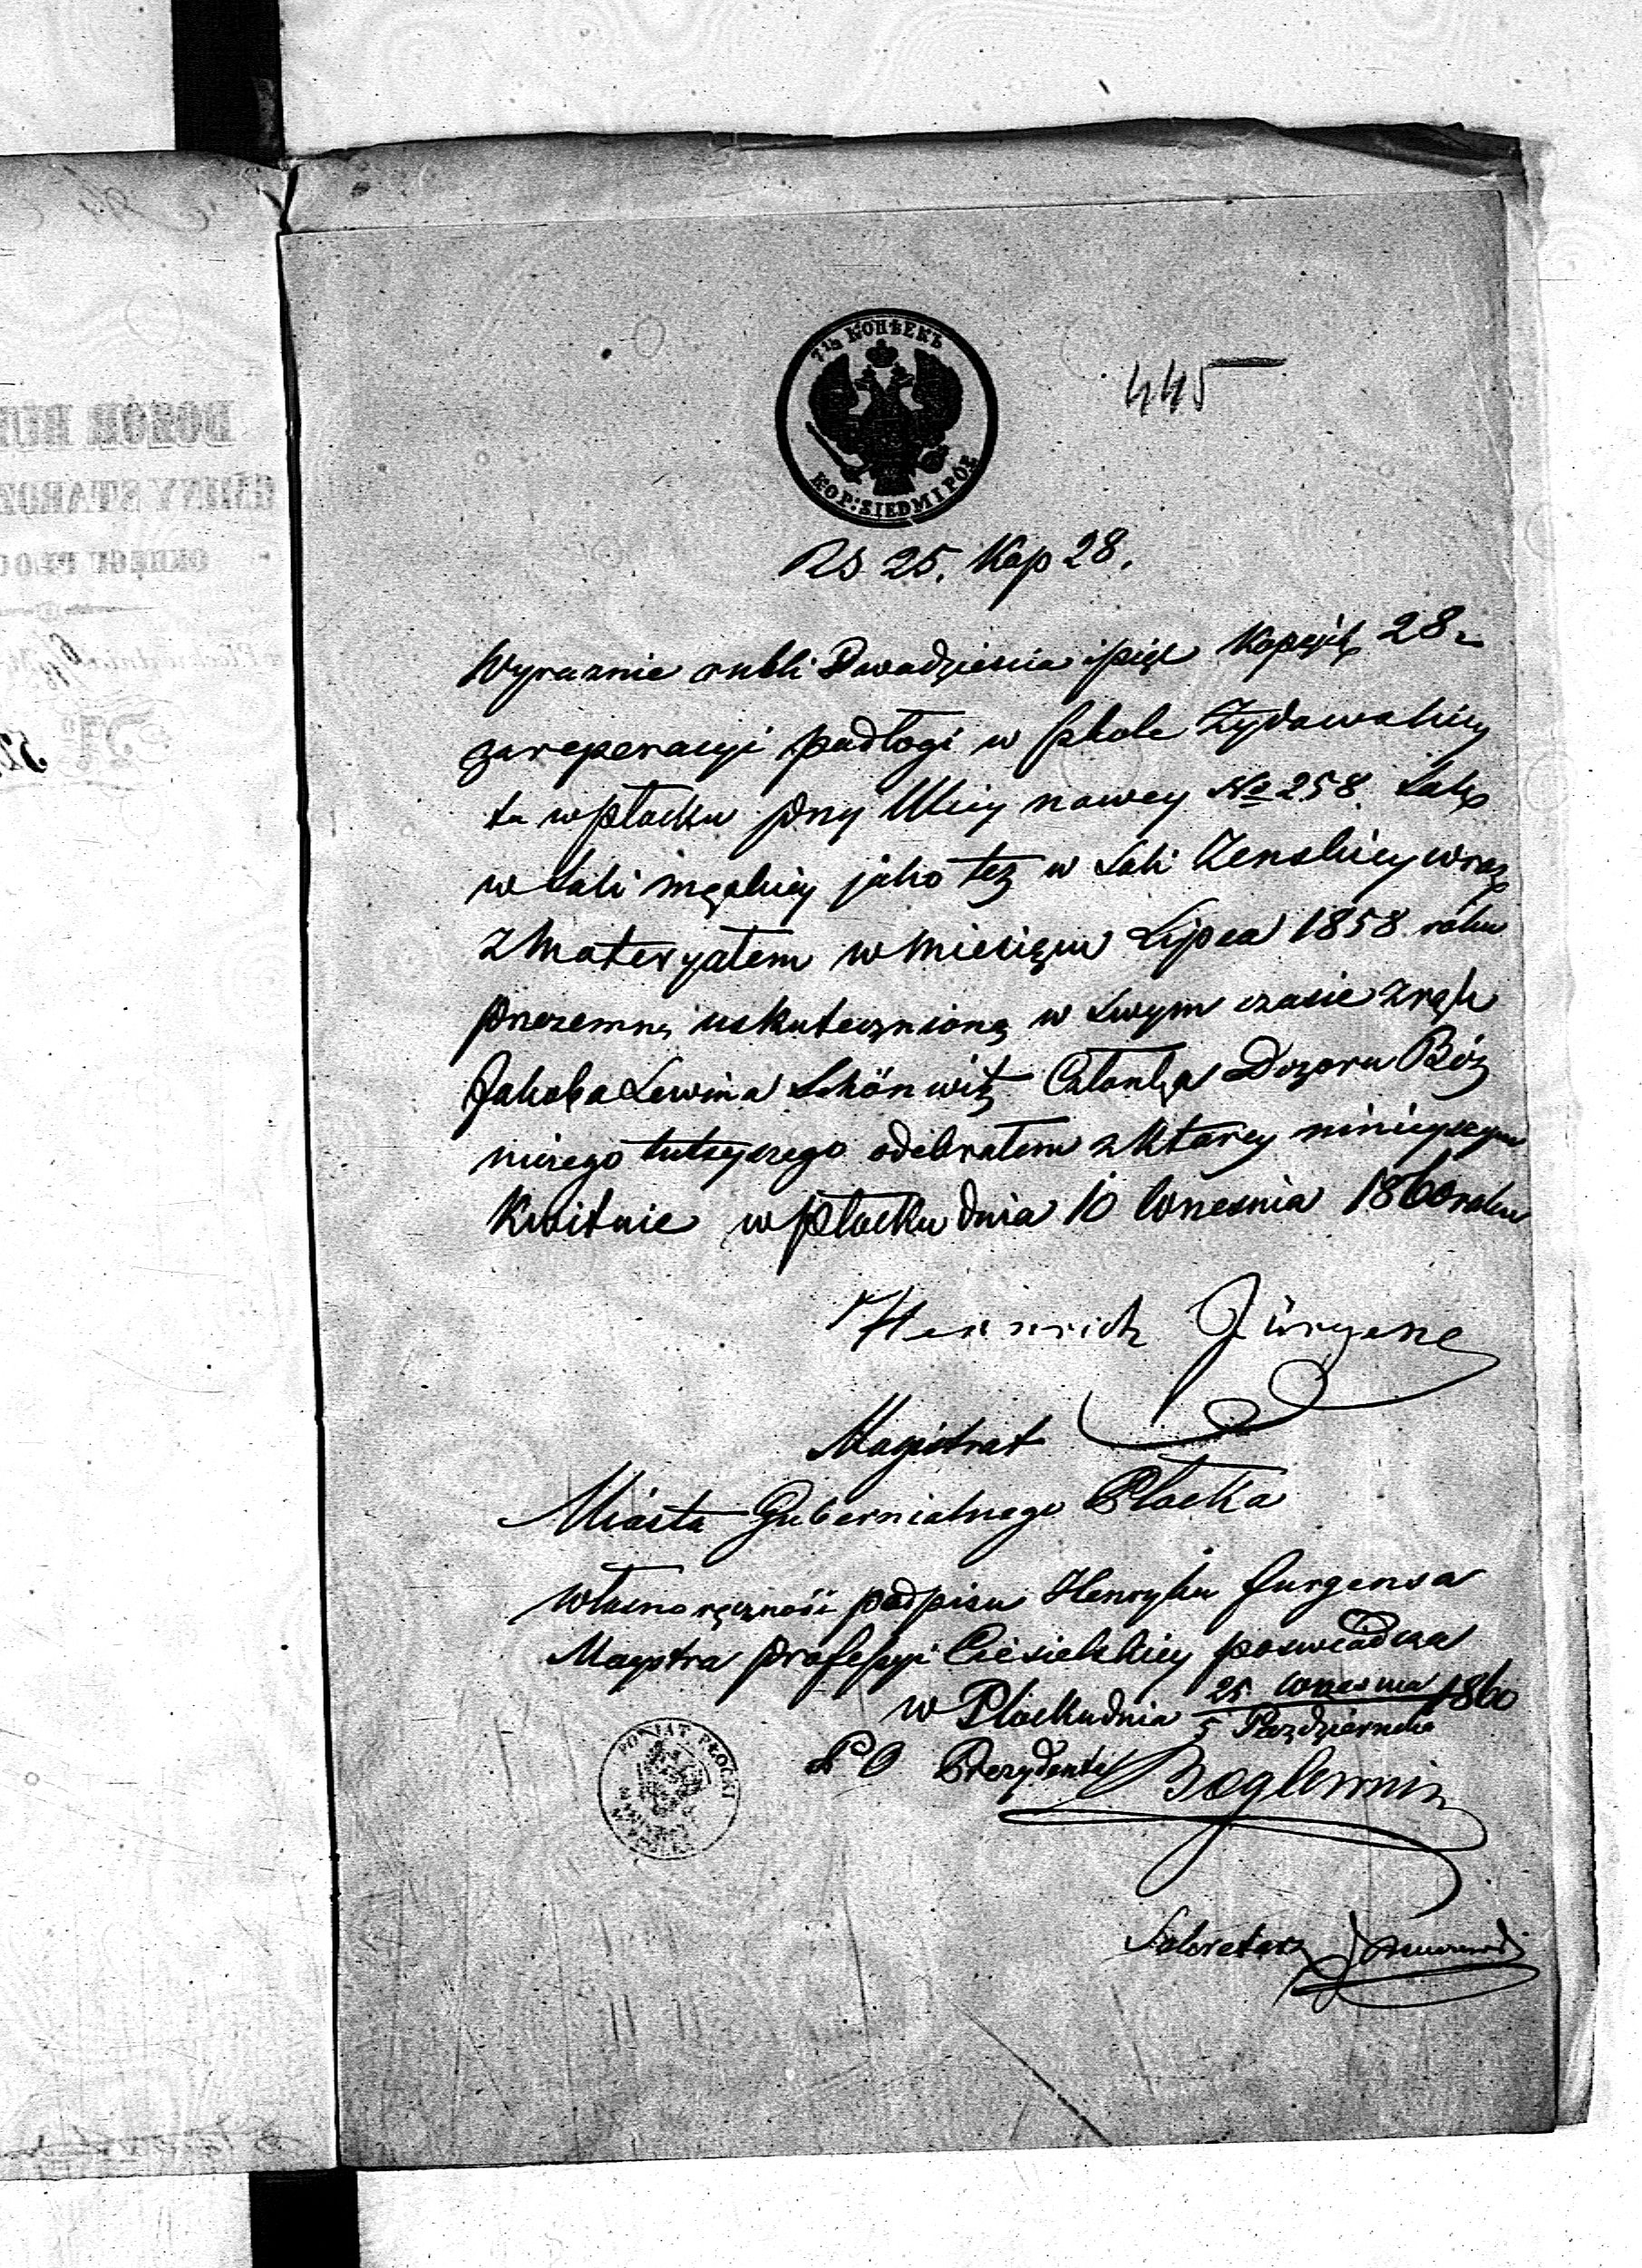 7½ КОПѢЕКЪ
KOP: SIEDM I PÓŁ
445
RS 25. Kop 28.
Wyraznie rubli Dwadziescia i pięć Kopejek 28
za reperacyi podłogi w szkole Żydowskiey
tu w Płocku przy Ulicy nowey No 258. tak
w Sali męskiey jako też w Sali Zenskiey wraz
z Materyałem w Miesiącu Lipca 1858 roku
przezemnie uskutecznioną w swym czasie z rąk
Jakoba Lewina Schönwitz Członka Dozoru Bóż
niczego tutejszego odebrałem z ktorey ninieyszym
Kwituie w Płocku dnia 10 Wrzesnia 1860 roku
Heinrich Jürgens
Magistrat
Miasta Gubernialnego Płocka
Własnoręczność podpisu Henryka Jurgensa
Maystra professyi Ciesielskiey poswiadcza
w Płocku dnia 25 Wrzesnia 1860
5 Pazdziernika
P O Prezydenta
Sekretarz
POWIAT PŁOCKI
DOZÓR
GMINY STAROZ
OKRĘGU PŁOC